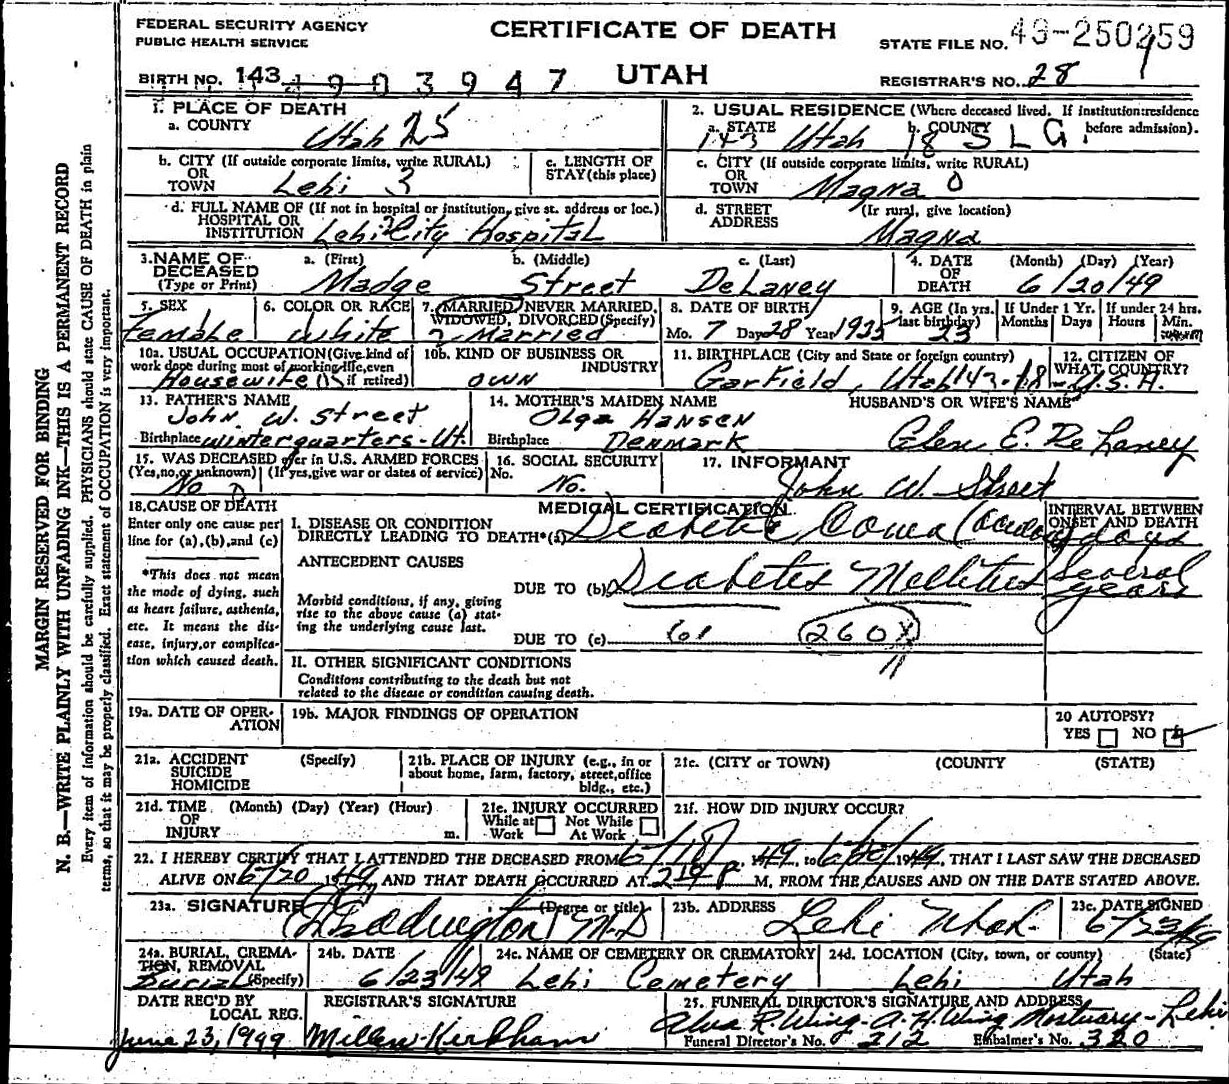 FEDERAL SECURITY AGENCY
PUBLIC HEALTH SERVICE
CERTIFICATE OF DEATH
STATE FILE NO. 49-250259
BIRTH NO. 143 4903947
UTAH
REGISTRAR'S NO. 28
1. PLACE OF DEATH
a. COUNTY Utah 25
2. USUAL RESIDENCE (Where deceased lived. If institution:residence before admission).
a. STATE 143 Utah b. COUNTY 18 S L G.
b. CITY (If outside corporate limits, write RURAL) OR TOWN Lehi 3
c. LENGTH OF STAY (this place)
c. CITY (If outside corporate limits, write RURAL) OR TOWN Magna 0
d. FULL NAME OF (If not in hospital or institution, give st. address or loc.) HOSPITAL OR INSTITUTION Lehi City Hospital
d. STREET ADDRESS (Ir rural, give location) Magna
3. NAME OF DECEASED (Type or Print)
a. (First) Madge b. (Middle) Street c. (Last) DeLaney
4. DATE OF DEATH (Month) (Day) (Year) 6/20/49
5. SEX Female
6. COLOR OR RACE White
7. MARRIED, NEVER MARRIED, WIDOWED, DIVORCED (Specify) 2 Married
8. DATE OF BIRTH Mo. 7 Day 28 Year 1925
9. AGE (In yrs. last birthday) 23
If Under 1 Yr. Months Days
If under 24 hrs. Hours Min.
10a. USUAL OCCUPATION (Give kind of work done during most of working life, even if retired) Housewife
10b. KIND OF BUSINESS OR INDUSTRY own
11. BIRTHPLACE (City and State or foreign country) Garfield, Utah 143-18
12. CITIZEN OF WHAT COUNTRY? U.S.A.
13. FATHER'S NAME John W. Street
Birthplace Winterquarters-Ut.
14. MOTHER'S MAIDEN NAME Olga Hansen
Birthplace Denmark
HUSBAND'S OR WIFE'S NAME Glen E. DeLaney
15. WAS DECEASED ever in U.S. ARMED FORCES (Yes, no, or unknown) (If yes, give war or dates of service) No
16. SOCIAL SECURITY No. No.
17. INFORMANT John W. Street
18. CAUSE OF DEATH
Enter only one cause per line for (a), (b), and (c)
*This does not mean the mode of dying, such as heart failure, asthenia, etc. It means the disease, injury, or complication which caused death.
MEDICAL CERTIFICATION
I. DISEASE OR CONDITION DIRECTLY LEADING TO DEATH* (a) Diabetic Coma
INTERVAL BETWEEN ONSET AND DEATH days
ANTECEDENT CAUSES
Morbid conditions, if any, giving rise to the above cause (a) stating the underlying cause last.
DUE TO (b) Diabetes Mellitus Several years
DUE TO (c) 61 260X
II. OTHER SIGNIFICANT CONDITIONS
Conditions contributing to the death but not related to the disease or condition causing death.
19a. DATE OF OPERATION
19b. MAJOR FINDINGS OF OPERATION
20 AUTOPSY?
YES NO
21a. ACCIDENT SUICIDE HOMICIDE (Specify)
21b. PLACE OF INJURY (e.g., in or about home, farm, factory, street, office bldg., etc.)
21c. (CITY or TOWN) (COUNTY) (STATE)
21d. TIME OF INJURY (Month) (Day) (Year) (Hour) m.
21e. INJURY OCCURRED While at Work Not While At Work
21f. HOW DID INJURY OCCUR?
22. I HEREBY CERTIFY THAT I ATTENDED THE DECEASED FROM 6/18, 1949, to 6/20/1949, THAT I LAST SAW THE DECEASED
ALIVE ON 6/20 1949 AND THAT DEATH OCCURRED AT M. FROM THE CAUSES AND ON THE DATE STATED ABOVE.
23a. SIGNATURE (Degree or title) Eddington M.D
23b. ADDRESS Lehi Utah.
23c. DATE SIGNED
24a. BURIAL, CREMATION, REMOVAL (Specify) Burial
24b. DATE 6/23/49
24c. NAME OF CEMETERY OR CREMATORY Lehi Cemetery
24d. LOCATION (City, town, or county) (State) Lehi Utah
DATE REC'D BY LOCAL REG. June 23, 1949
REGISTRAR'S SIGNATURE Kirkham
25. FUNERAL DIRECTOR'S SIGNATURE AND ADDRESS Alva R. Wing-A. H. Wing Mortuary-Lehi
Funeral Director's No. 212 Embalmer's No. 320
MARGIN RESERVED FOR BINDING
N. B.—WRITE PLAINLY WITH UNFADING INK—THIS IS A PERMANENT RECORD
Every item of information should be carefully supplied. PHYSICIANS should state CAUSE OF DEATH in plain
terms, so that it may be properly classified. Exact statement of OCCUPATION is very important.